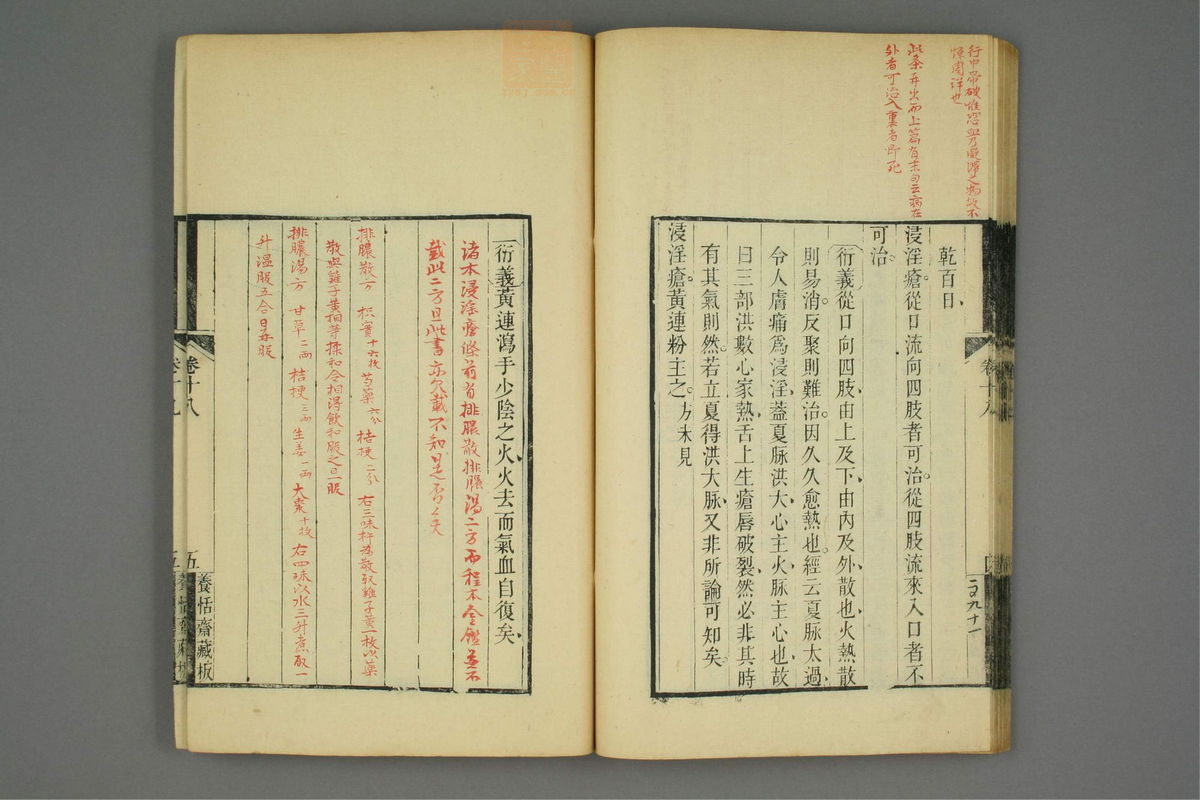 乾百日
浸淫瘡從口流向四肢者可治從四肢流來入口者不
可治
衍義從口向四肢由上及下由內及外散也火熱散
則易消反聚則難治因久久愈熱也經云夏脉太過
令人膚痛爲浸淫蓋夏脉洪大心主火脉主心也故
日三部洪數心家熱舌上生瘡唇破裂然必非其時
有其氣則然若立夏得洪大脉又非所論可知矣
浸淫瘡黃連粉主之方未見
此條再出而上篇有末句云病在
外者可治入裏者即死
卷十八
衍義黃連瀉手少陰之火火去而氣血自復矣
諸本浸淫瘡條前有排膿散排膿湯二方而程本金鑑並不
載此二方且此書亦欠載不知是否
排膿散方 枳實十六枚 芍藥六分 桔梗二分 右三味杵爲散取雞子黃一枚以藥
散與雞子黃相等揉和令相得飲和服之日一服
排膿湯方 甘草二兩 桔梗三兩 生姜一兩 大棗十枚 右四味以水三升煮取一
升溫服五合日再服
卷十八
五
養恬齋藏板